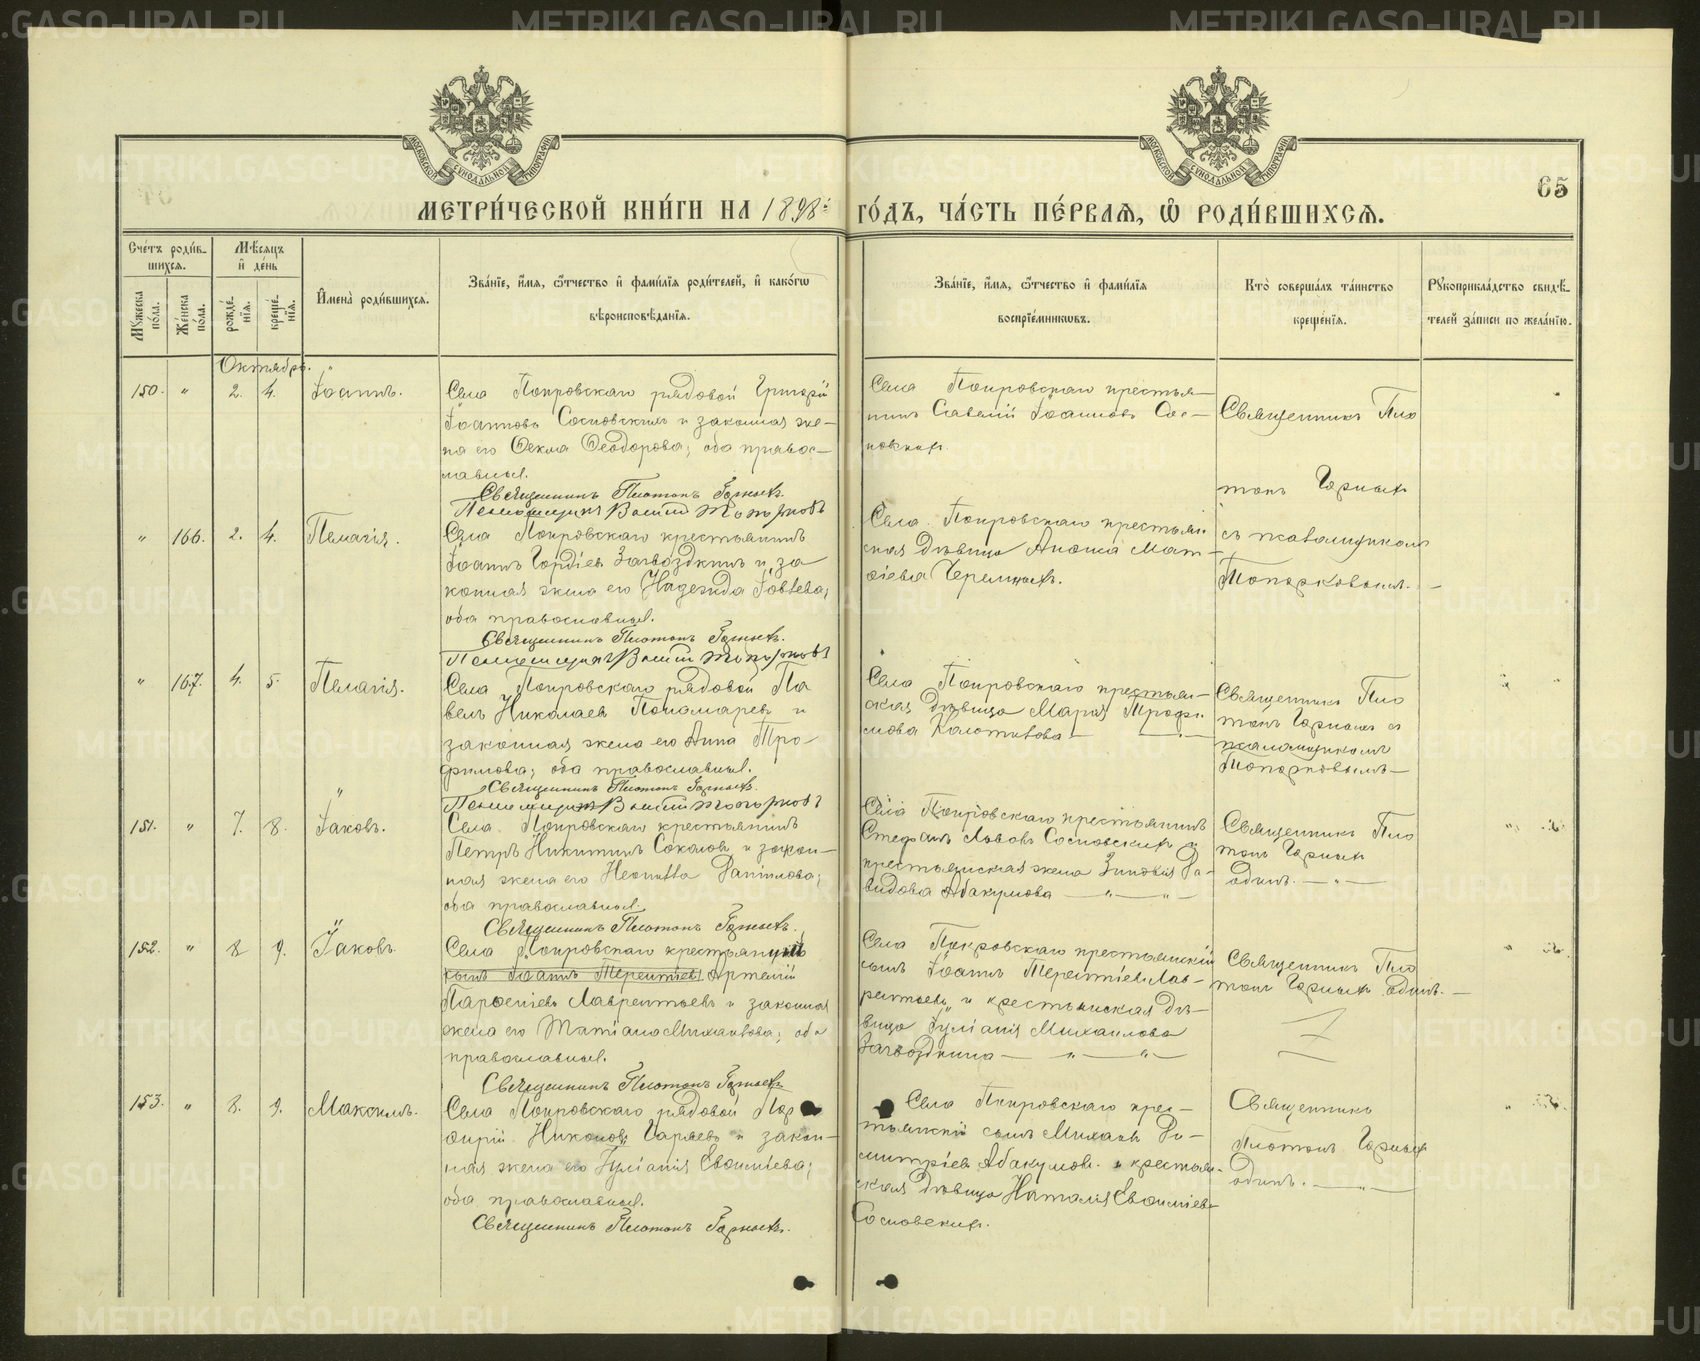 65
МЕТРИ́ЧЕСКОЙ КНИ́ГИ НА 1898й ГО́ДЪ, ЧА́СТЬ ПЕ́РВАѦ, Ѿ РОДИ́ВШИХСѦ.
Сче́тъ роди́в-
шихсѧ.
Мужеска по́ла.
Же́нска по́ла.
Мѣ́сѧцъ
и҆ де́нь
рожде́нїѧ.
креще́нїѧ.
И҆мена̀ роди́вшихсѧ.
Зва́нїе, и҆́мѧ, ѻ҆́тчество и҆ фами́лїѧ роди́телей, и҆ како́гѡ
вѣроисповѣ́данїѧ.
Зва́нїе, и҆́мѧ, ѻ҆́тчество и҆ фами́лїѧ
воспрїе́мникѡвъ.
Кто̀ соверша́лъ та́инство
креще́нїѧ.
Рꙋкоприкла́дство свидѣ́-
телей за́писи по жела́нїю.
Октябрь.
150. " 2. 4. Іоаннъ.
Села Покровскаго рядовой Григорій
Іоанновъ Сосновскихъ и законная же-
на его Ѳекла Ѳеодорова; оба правос-
лавные.
Священникъ Платонъ Горныхъ.
Псаломщикъ Топорковъ
Села Покровскаго крестья-
нинъ Савелій Іоанновъ Сос-
новскихъ.
Священникъ Пла
тонъ Горныхъ
съ псаломщикомъ
Топорковымъ. –
" 166. 2. 4. Пелагія.
Села Покровскаго крестьянинъ
Іоаннъ Гордіевъ Загвоздкинъ и за
конная жена его Надежда Іовлева;
оба православные.
Священникъ Платонъ Горныхъ.
Псаломщикъ Топорковъ
Села Покровскаго крестьян
ская дѣвица Мат-
ѳіева Черемныхъ.
" 167. 4. 5. Пелагія.
Села Покровскаго рядовой Па
велъ Николаевъ Пономаревъ и
законная жена его Анна Тро-
фимова; оба православные.
Священникъ Платонъ Горныхъ.
Псаломщикъ Топорковъ
Села Покровскаго крестьян-
ская дѣвица Марія Трофи
мова
Священникъ Пла
тонъ Горныхъ съ
псаломщикомъ
Топорковымъ –
151. " 7. 8. Іаковъ.
Села Покровскаго крестьянинъ
Петръ Никитинъ Соколовъ и закон-
ная жена его Неонилла Даніилова;
оба православные.
Священникъ Платонъ Горныхъ.
Села Покровскаго крестьянинъ
Стефанъ Львовъ Сосновскихъ и
крестьянская жена Зиновія Да-
видова Абакумова – " – " –
Священникъ Пла
тонъ Горныхъ
одинъ. – " –
152. " 8 9. Іаковъ.
Села Покровскаго крестьянинъ
сынъ Іоаннъ Терентіевъ Артемій
Парѳеніевъ Лаврентьевъ и законная
жена его Татіана Михаилова; оба
православные.
Священникъ Платонъ Горныхъ
Села Покровскаго крестьянскій
сынъ Іоаннъ Терентіевъ Лав-
рентьевъ и крестьянская дѣ-
вица Іуліанія Михаилова
Загвоздкина – " – " –
Священникъ Пла
тонъ Горныхъ одинъ. –
153. " 8. 9. Максимъ.
Села Покровскаго рядовой Пор
ѳирій Никоновъ Горяевъ и закон-
ная жена его Іуліанія Евѳиміева;
оба православные.
Священникъ Платонъ Горныхъ.
Села Покровскаго крес-
тьянскій сынъ Михаилъ Ди-
митріевъ Абакумовъ и крестьян-
ская дѣвица Наталія Евѳиміева
Сосновскихъ.
Священникъ
Платонъ Горныхъ
одинъ. – " –
METRIKI.GASO-URAL.RU